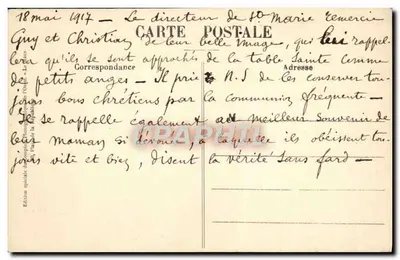 18 mai 1917 - Le directeur de Ste Marie remercie
Guy et Christian de leur belle image, qui lui rappel-
CARTE POSTALE
lera qu'ils se sont approchés de la table sainte comme
de petits anges - Il prie N. S de les conserver tou-
Correspondance
Adresse
jours bons chrétiens par la communion fréquente -
Il se rappelle également au meilleur souvenir de
leur maman si dévouée, à laquelle ils obéissent tou-
jours vite et bien, disent la vérité sans fard -
CPARAMA